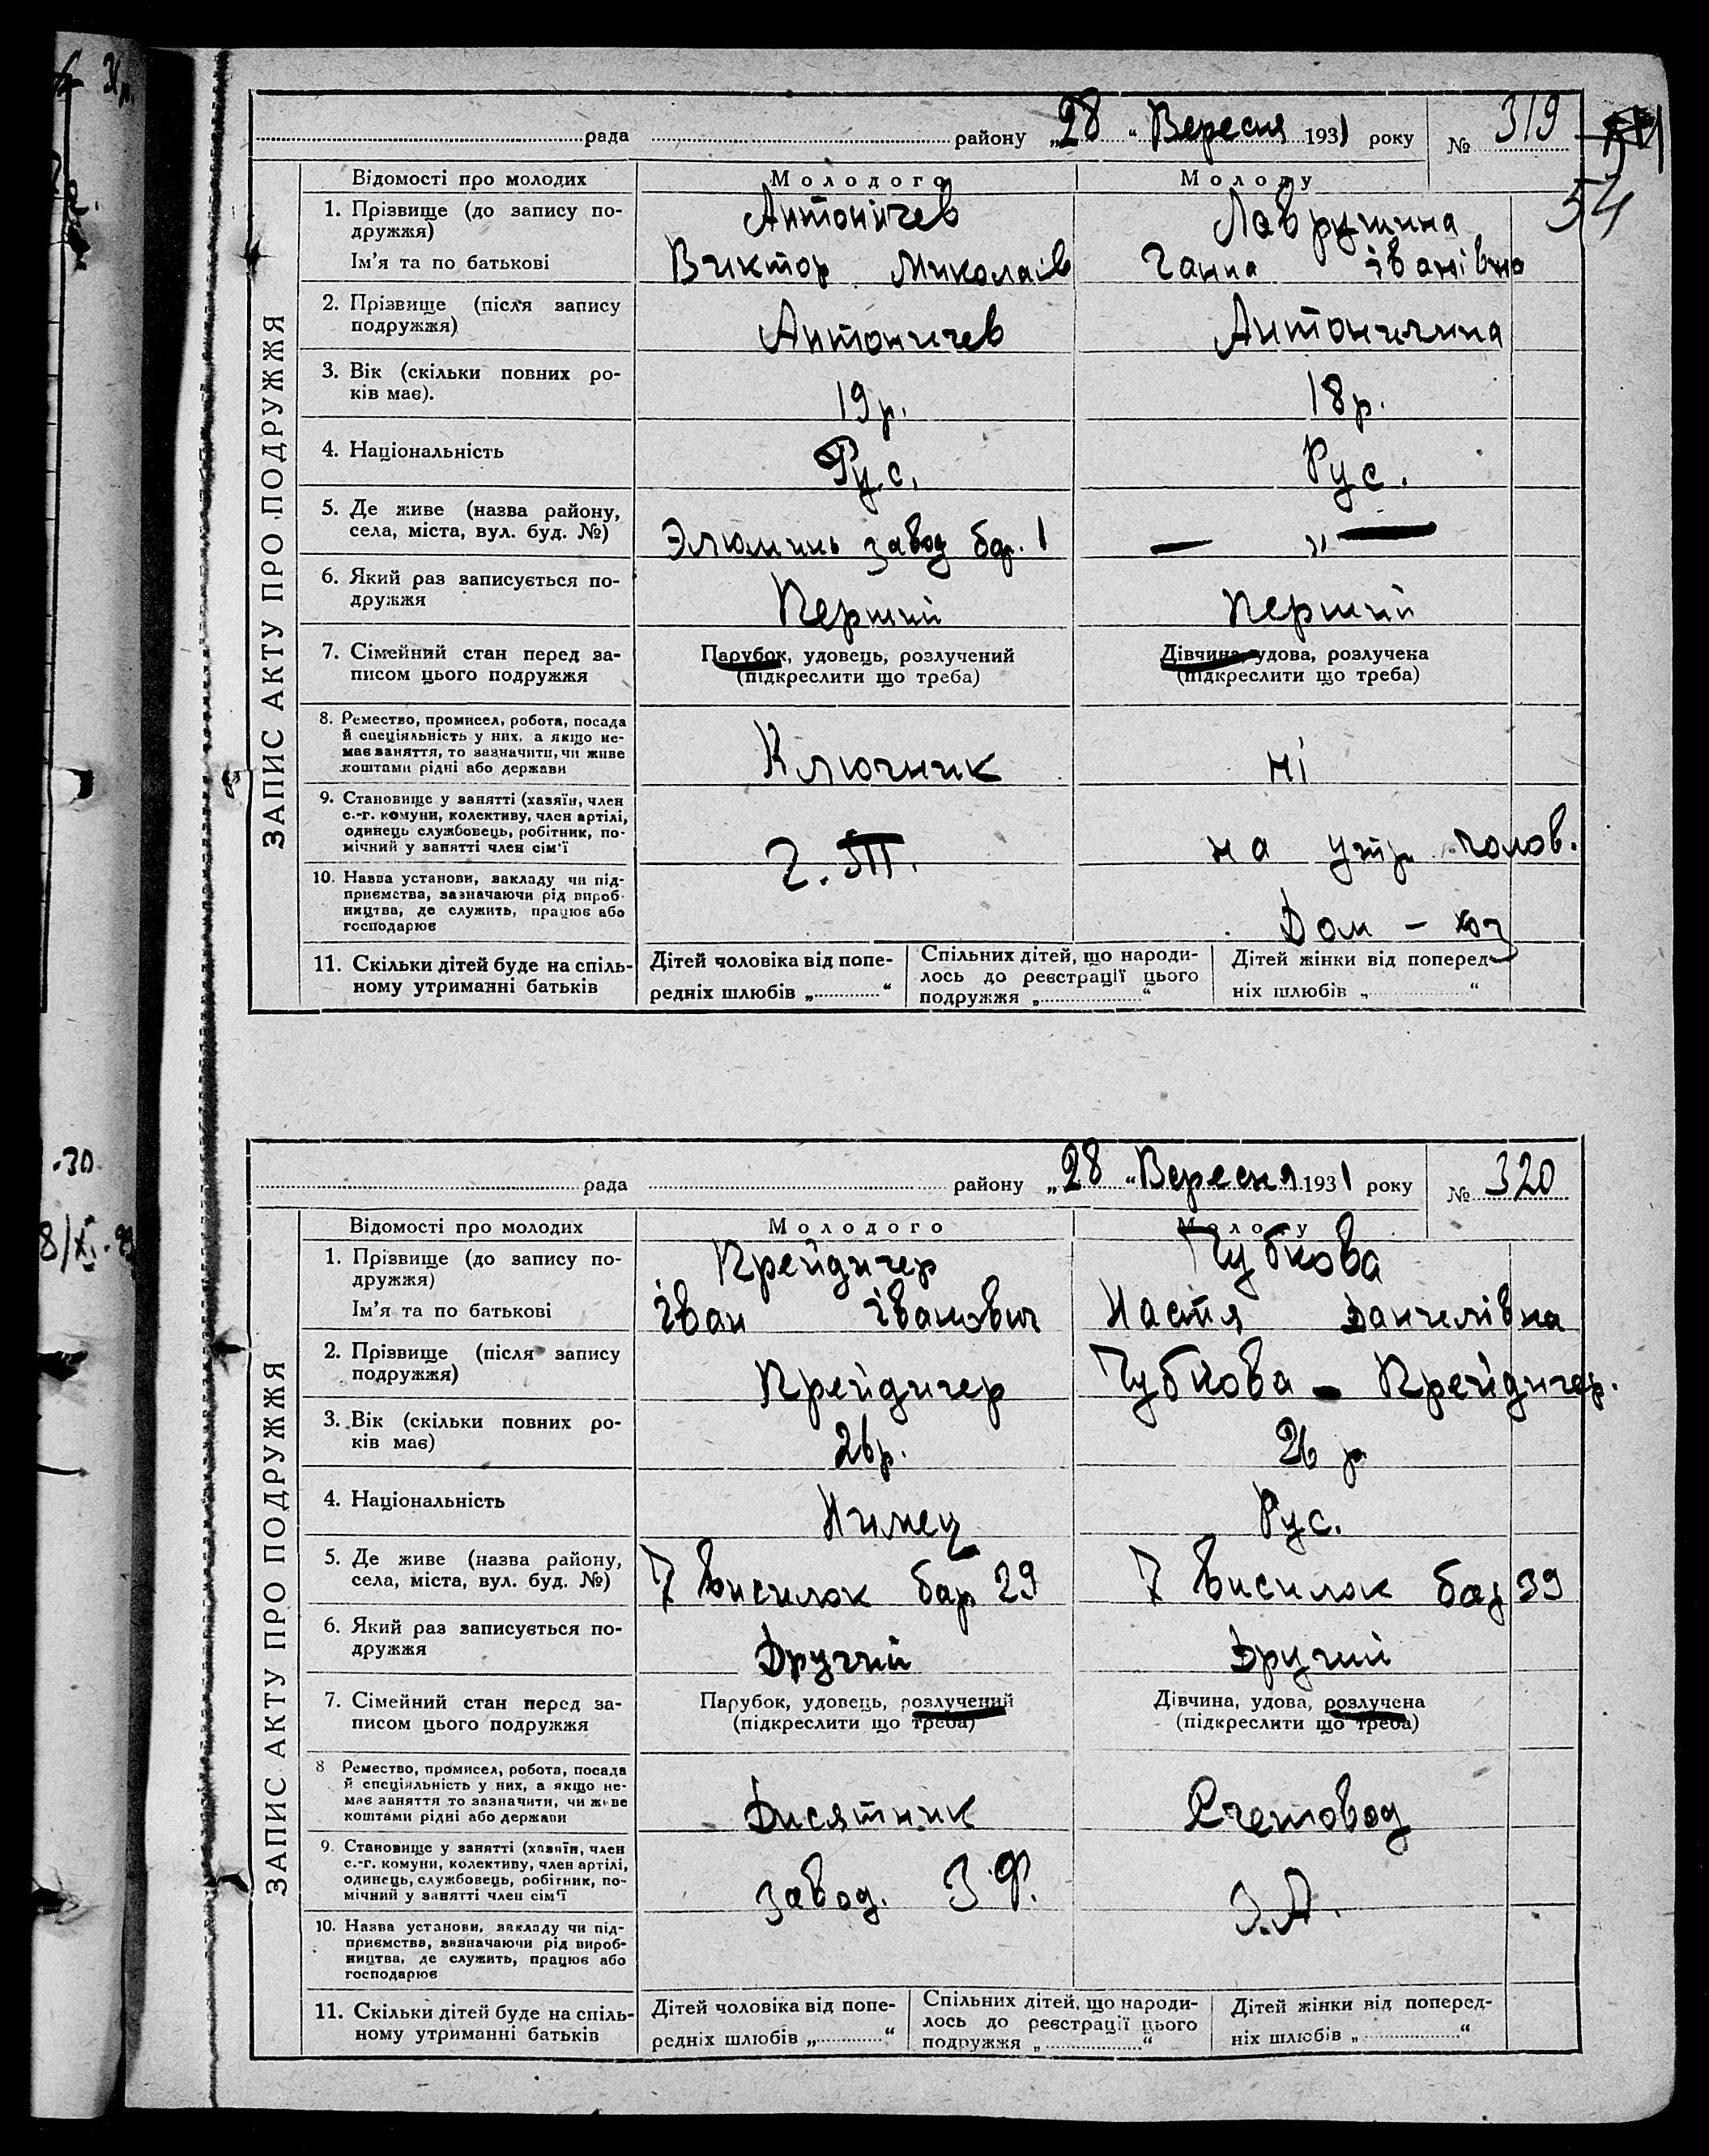 рада района „28“ Вересня 1931 року № 319
54
ЗАПИС АКТУ ПРО ПОДРУЖЖЯ
Відомості про молодих Молодого Молоду
1. Прізвище (до запису по-
дружжя) Антонічев Лаврушина
Ім'я та по батькові Виктор Миколаїв Ганна Іванівна
2. Прізвище (після запису
подружжя) Антоничев
3. Вік (скільки повних ро-
ків має). 19 р. 18 р.
4. Національність Рус. Рус.
5. Де живе (назва району,
села, міста, вул. буд. №) Элюминь завод бар. 1 — „ —
6. Який раз записується по-
дружжя Перший Перший
7. Сімейний стан перед за-
писом цього подружжя
Парубок, удовець, розлучений
(підкреслити що треба)
Дівчина, удова, розлучена
(підкреслити що треба)
8. Ремество, промисел, робота, посада
й спеціяльність у них, а якщо не-
має заняття, то зазначити, чи живе
коштами рідні або держави
Ключник ні
9. Становище у занятті (хазяїн, член
с.-г. комуни, колективу, член артілі,
одинець службовець, робітник, по-
мічний у занятті член сім'ї
на утр. чолов.
10. Назва установи, закладу чи під-
приємства, зазначаючи рід вироб-
ництва, де служить, працює або
господарює
Дом – хоз
11. Скільки дітей буде на спіль-
ному утриманні батьків
Дітей чоловіка від попе-
редніх шлюбів „ “
Спільних дітей, що народи-
лось до реєстрації цього
подружжя „ “
Дітей жінки від поперед-
ніх шлюбів „ “
-30
рада району „28“ Вересня 1931 року № 320
ЗАПИС АКТУ ПРО ПОДРУЖЖЯ
Відомості про молодих Молодого Молоду
1. Прізвище (до запису по-
дружжя) Крейдичер Чубкова
Ім'я та по батькові Іван Іванович Настя Данилівна
2. Прізвище (після запису
подружжя) Крейдичер Чубкова - Крейдичер.
3. Вік (скільки повних ро-
ків має) 26 р. 26 р
4. Національність Нимец Рус.
5. Де живе (назва району,
села, міста, вул. буд. №) 7 висилок бар 29 7 висилок бар 39
6. Який раз записується по-
дружжя Другий Другий
7. Сімейний стан перед за-
писом цього подружжя
Парубок, удовець, розлучений
(підкреслити що треба)
Дівчина, удова, розлучена
(підкреслити що треба)
8 Ремество, промисел, робота, посада
й спеціяльність у них, а якщо не-
має заняття то зазначити, чи живе
коштами рідні або держави
Дисятник Счетовод
9. Становище у занятті (хазяїн, член
с.-г. комуни, колективу, член артілі,
одинець, службовець, робітник, по-
мічний у занятті член сім'ї
завод. З.Ф. З.А.
10. Назва установи, закладу чи під-
приємства, зазначаючи рід вироб-
ництва, де служить, працює або
господарює
11. Скільки дітей буде на спіль-
ному утриманні батьків
Дітей чоловіка від попе-
редніх шлюбів „ “
Спільних дітей, що народи-
лось до реєстрації цього
подружжя „ “
Дітей жінки від поперед-
ніх шлюбів „ “